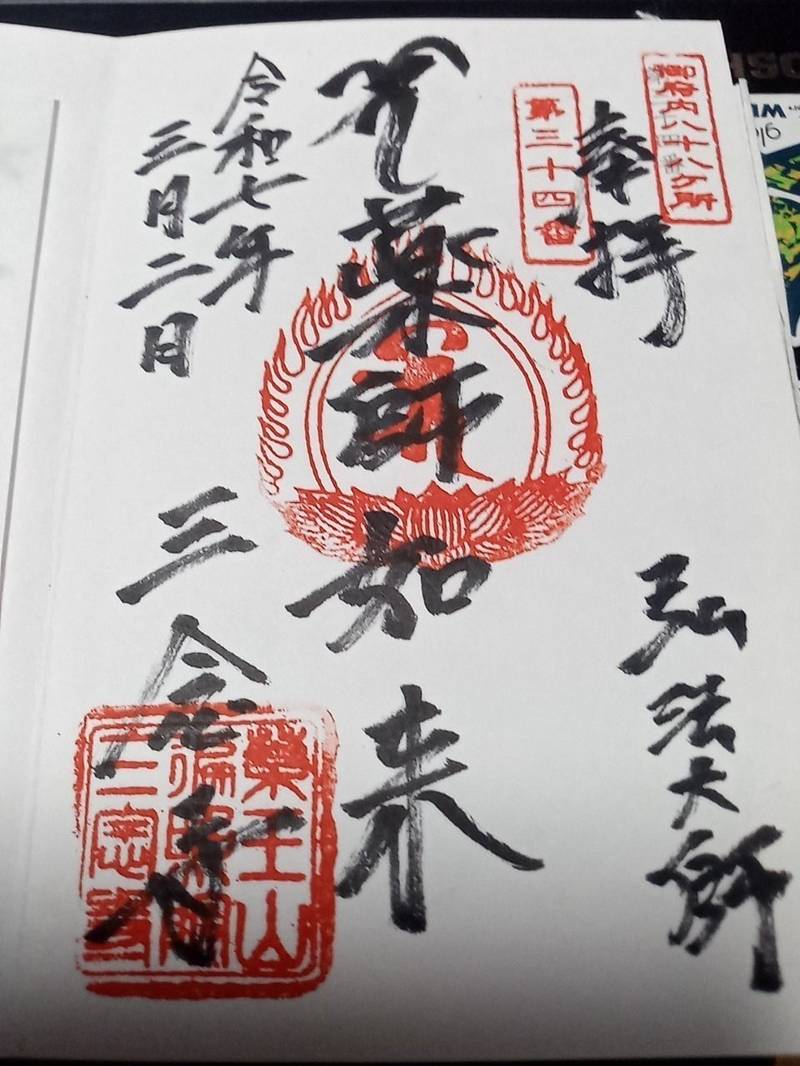 御府内八十八ヶ所
奉拝
弘法大師
第三十四番
薬師如来
令和七年
三月二日
三念寺
薬王山
遍照院
三念寺